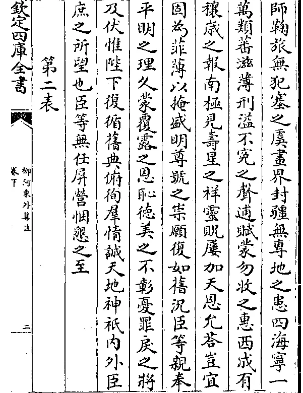 師鞠旅無犯塞之虞畫界封疆無專地之患四海寧一
萬類蕃滋薄刑溢不冤之聲逋賦蒙勿收之惠西成有
穰歲之報南極見壽星之祥靈貺屢加天恩允荅豈宜
固為菲薄以掩盛明尊號之崇願復如舊況臣等親奉
平明之理久蒙覆露之恩恥徳美之不彰憂罪戾之將
及伏惟陛下復循舊典俯徇羣情誠天地神祇内外臣
庶之所望也臣等無任屏營悃懇之至
第二表
欽定四庫全書
柳河東外集注
卷下
二